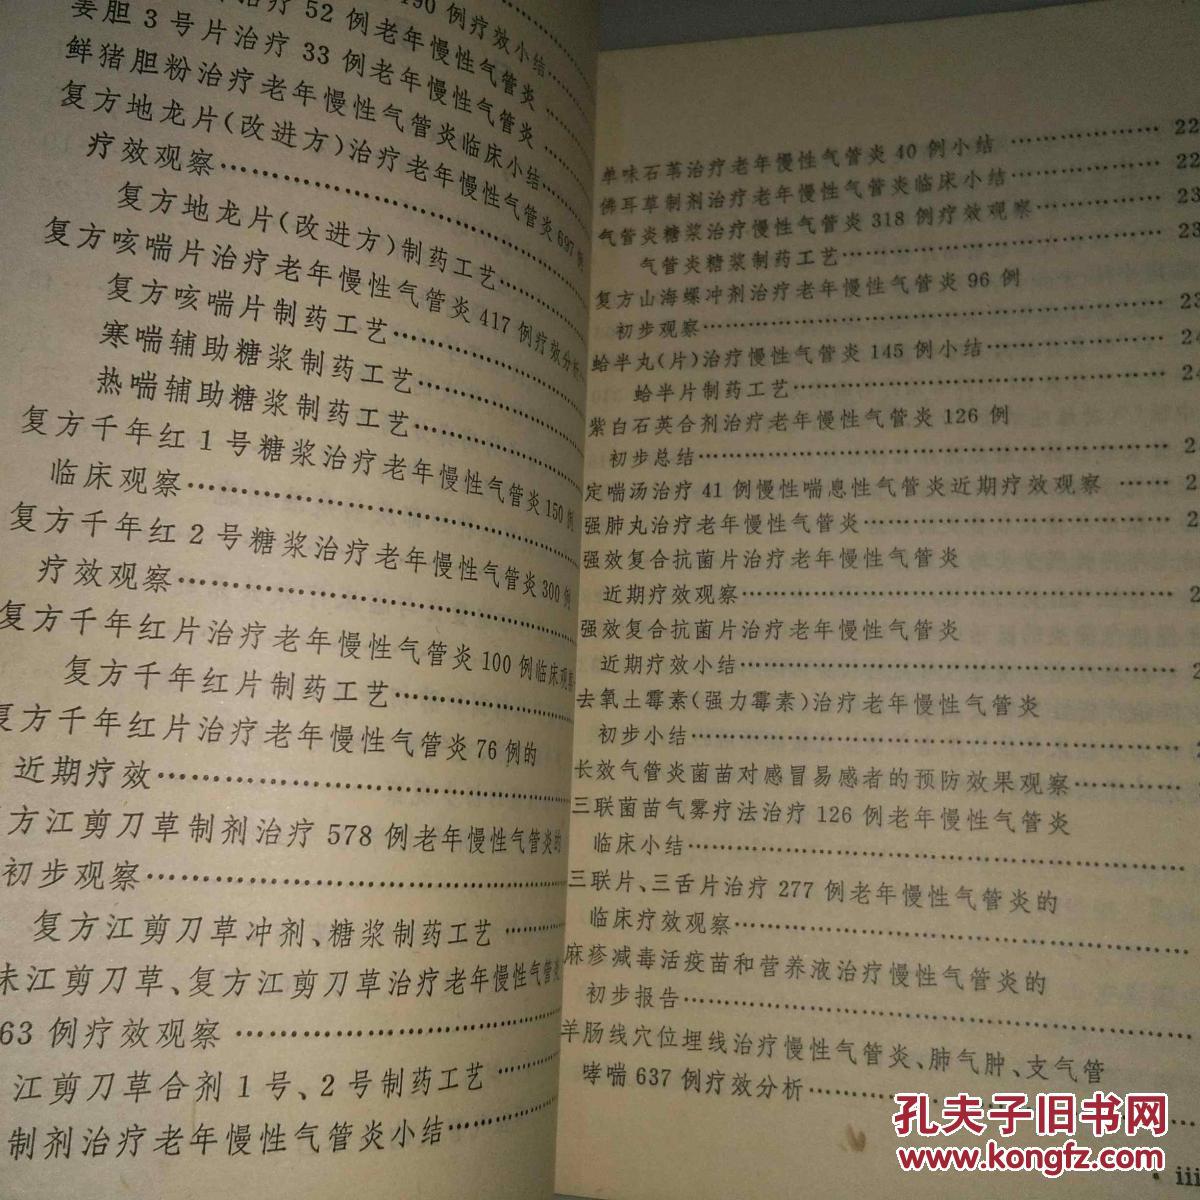 190 例疗效小结
治疗 52 例老年慢性气管炎
姜胆 3 号片治疗 33 例老年慢性气管炎
鲜猪胆粉治疗老年慢性气管炎临床小结
复方地龙片(改进方)治疗老年慢性气管炎 697 例
疗效观察
复方地龙片(改进方)制药工艺
复方咳喘片治疗老年慢性气管炎 417 例疗效分析
复方咳喘片制药工艺
寒喘辅助糖浆制药工艺
热喘辅助糖浆制药工艺
复方千年红 1 号糖浆治疗老年慢性气管炎 150 例
临床观察
复方千年红 2 号糖浆治疗老年慢性气管炎 300 例
疗效观察
复方千年红片治疗老年慢性气管炎 100 例临床观察
复方千年红片制药工艺
复方千年红片治疗老年慢性气管炎 76 例的
近期疗效
方江剪刀草制剂治疗 578 例老年慢性气管炎的
初步观察
复方江剪刀草冲剂、糖浆制药工艺
味江剪刀草、复方江剪刀草治疗老年慢性气管炎
63 例疗效观察
江剪刀草合剂 1 号、2 号制药工艺
制剂治疗老年慢性气管炎小结
单味石苇治疗老年慢性气管炎 40 例小结 22
佛耳草制剂治疗老年慢性气管炎临床小结 22
气管炎糖浆治疗慢性气管炎 318 例疗效观察 23
气管炎糖浆制药工艺 23
复方山海螺冲剂治疗老年慢性气管炎 96 例
初步观察 23
蛤半丸(片)治疗慢性气管炎 145 例小结 24
蛤半片制药工艺 24
紫白石英合剂治疗老年慢性气管炎 126 例
初步总结 2
定喘汤治疗 41 例慢性喘息性气管炎近期疗效观察 2
强肺丸治疗老年慢性气管炎 2
强效复合抗菌片治疗老年慢性气管炎
近期疗效观察 2
强效复合抗菌片治疗老年慢性气管炎
近期疗效小结 2
去氧土霉素(强力霉素)治疗老年慢性气管炎
初步小结 2
长效气管炎菌苗对感冒易感者的预防效果观察
三联菌苗气雾疗法治疗 126 例老年慢性气管炎
临床小结
三联片、三舌片治疗 277 例老年慢性气管炎的
临床疗效观察
麻疹减毒活疫苗和营养液治疗慢性气管炎的
初步报告
羊肠线穴位埋线治疗慢性气管炎、肺气肿、支气管
哮喘 637 例疗效分析
iii
孔夫子旧书网
www.kongfz.com